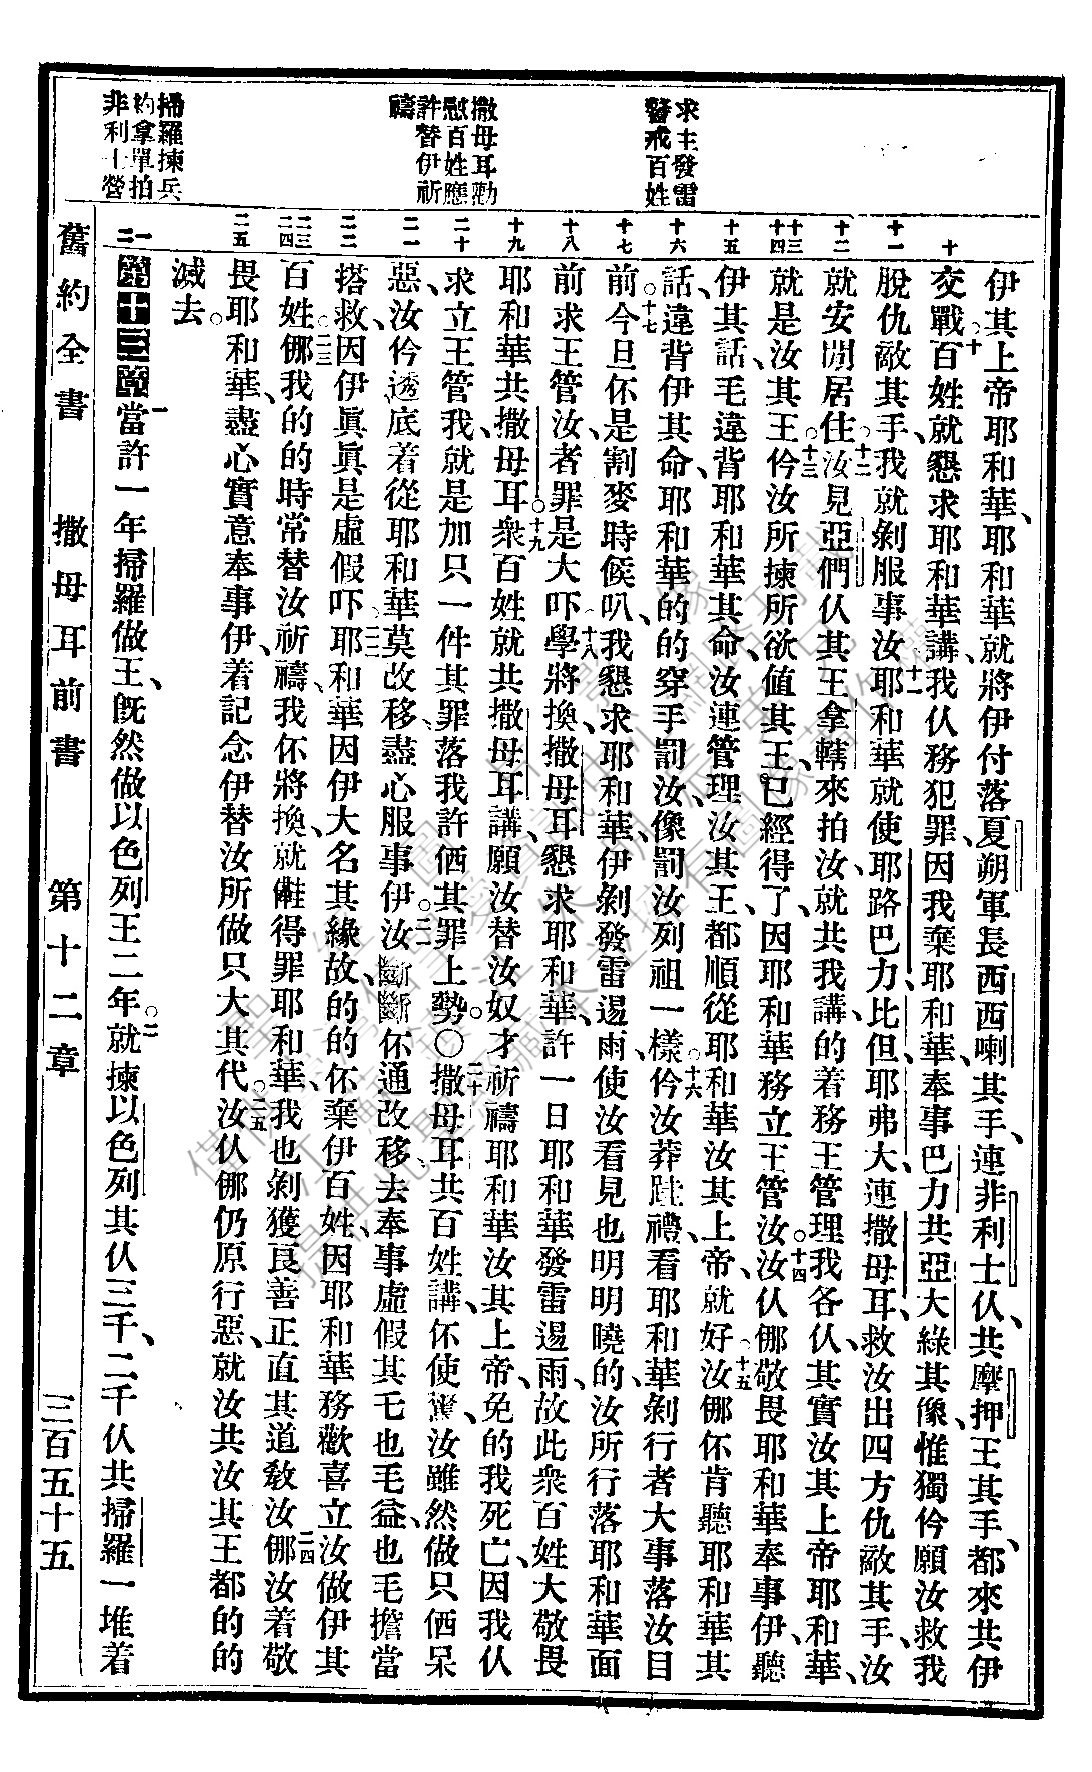 求主發雷
警戒百姓
撒母耳勸
慰百姓應
許替伊祈
禱
掃羅揀兵
約拿單拍
非利士營
十
十一
十二
十三
十四
十五
十六
十七
十八
十九
二十
二一
二二
二三
二四
二五
一
二
伊其上帝耶和華、耶和華就將伊付落夏朔軍長西西喇其手、連非利士仈、共摩押王其手、都來共伊
交戰。十百姓就懇求耶和華講、我仈務犯罪因我棄耶和華、奉事巴力共亞大綠其像、惟獨仱願汝救我
脫仇敵其手、我就剝服事汝。十一耶和華就使耶路巴力、比但、耶弗大、連撒母耳、救汝出四方仇敵其手、汝
就安閒居住。十二汝見亞們仈其王拿轄來拍汝、就共我講、的着務王管理我各仈、其實汝其上帝耶和華、
就是汝其王。十三仱汝所揀所欲値其王、已經得了、因耶和華務立王管汝。十四汝仈倻敬畏耶和華奉事伊、聽
伊其話、毛違背耶和華其命、汝連管理汝其王、都順從耶和華汝其上帝、就好。十五汝倻伓肯聽耶和華其
話、違背伊其命、耶和華的的穿手罰汝、像罰汝列祖一樣。十六仱汝莽跬禮、看耶和華、剝行者大事落汝目
前。十七今旦伓是割麥時候叭、我懇求耶和華、伊剝發雷逿雨、使汝看見也明明曉的、汝所行落耶和華面
前求王管汝、者罪是大吓。十八學將換、撒母耳懇求耶和華、許一日耶和華發雷逿雨、故此衆百姓大敬畏
耶和華共撒母耳。十九衆百姓就共撒母耳講、願汝替汝奴才祈禱耶和華汝其上帝、免的我死亡、因我仈
求立王管我、就是加只一件其罪落我許価其罪上勢。〇二十撒母耳共百姓講、伓使驚、汝雖然做只価呆
惡、汝仱透底着從耶和華莫改移、盡心服事伊。二一汝斷斷伓通改移去奉事虛假其乇也毛益、也毛擔當
搭救、因伊眞眞是虛假吓。二二耶和華因伊大名其緣故、的的伓棄伊百姓、因耶和華務歡喜立汝做伊其
百姓。二三倻我的的時常替汝祈禱、我伓將換、就𠆧得罪耶和華、我也剝獲良善正直其道敎汝。二四倻汝着敬
畏耶和華、盡心實意奉事伊、着記念伊替汝所做只大其代。二五汝仈倻仍原行惡、就汝共汝其王都的的
滅去。
第十三章一當許一年掃羅做王、旣然做以色列王二年。二就揀以色列其仈三千、二千仈共掃羅一堆着
舊約全書 撒母耳前書 第十二章 三百五十五